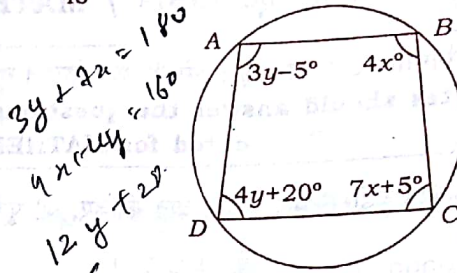 3y + 7x = 180
4x + 4y = 160
12y + 28
A
B
3y–5°
4x°
4y+20°
7x+5°
D
C